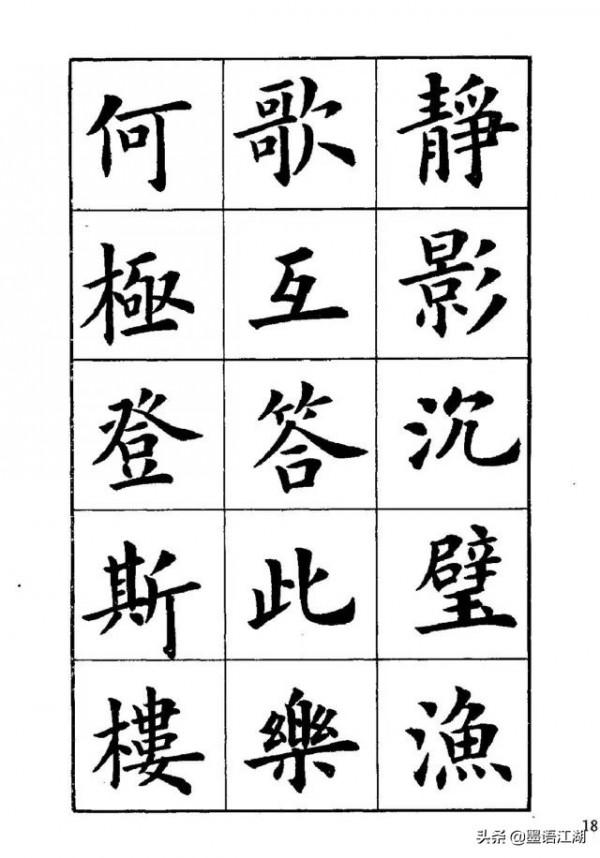 靜影沉璧漁
歌互答此樂
何極登斯樓
18
头条@墨语江湖